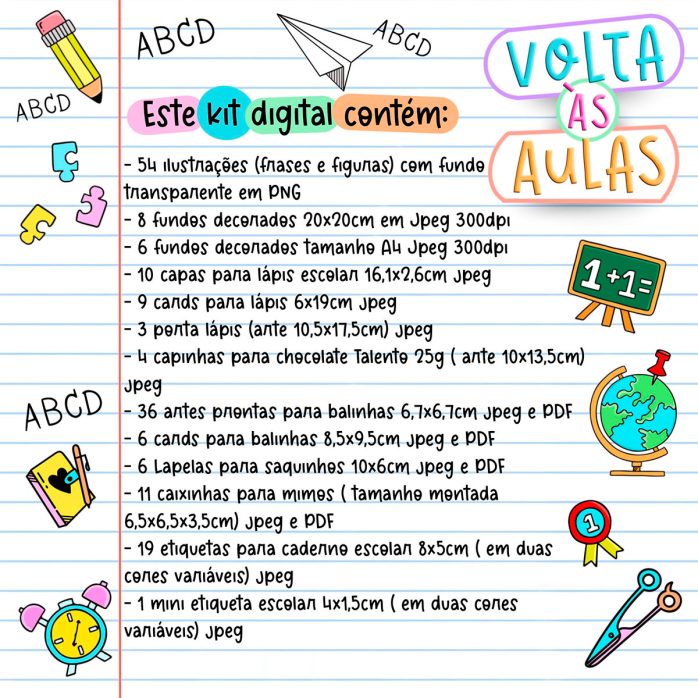 ABCD
ABCD
ABCD
VOLTA
ÀS
AULAS
Este kit digital contém:
- 54 ilustrações (frases e figuras) com fundo
transparente em PNG
- 8 fundos decorados 20x20cm em Jpeg 300dpi
- 6 fundos decorados tamanho A4 Jpeg 300dpi
- 10 capas para lápis escolar 16,1x2,6cm jpeg
- 9 cards para lápis 6x19cm jpeg
- 3 porta lápis (arte 10,5x17,5cm) jpeg
- 4 capinhas para chocolate Talento 25g ( arte 10x13,5cm)
jpeg
- 36 artes prontas para balinhas 6,7x6,7cm jpeg e PDF
- 6 cards para balinhas 8,5x9,5cm jpeg e PDF
- 6 Lapelas para saquinhos 10x6cm jpeg e PDF
- 11 caixinhas para mimos ( tamanho montada
6,5x6,5x3,5cm) jpeg e PDF
- 19 etiquetas para caderno escolar 8x5cm ( em duas
cores variáveis) jpeg
- 1 mini etiqueta escolar 4x1,5cm ( em duas cores
variáveis) jpeg
1+1=
ABCD
1